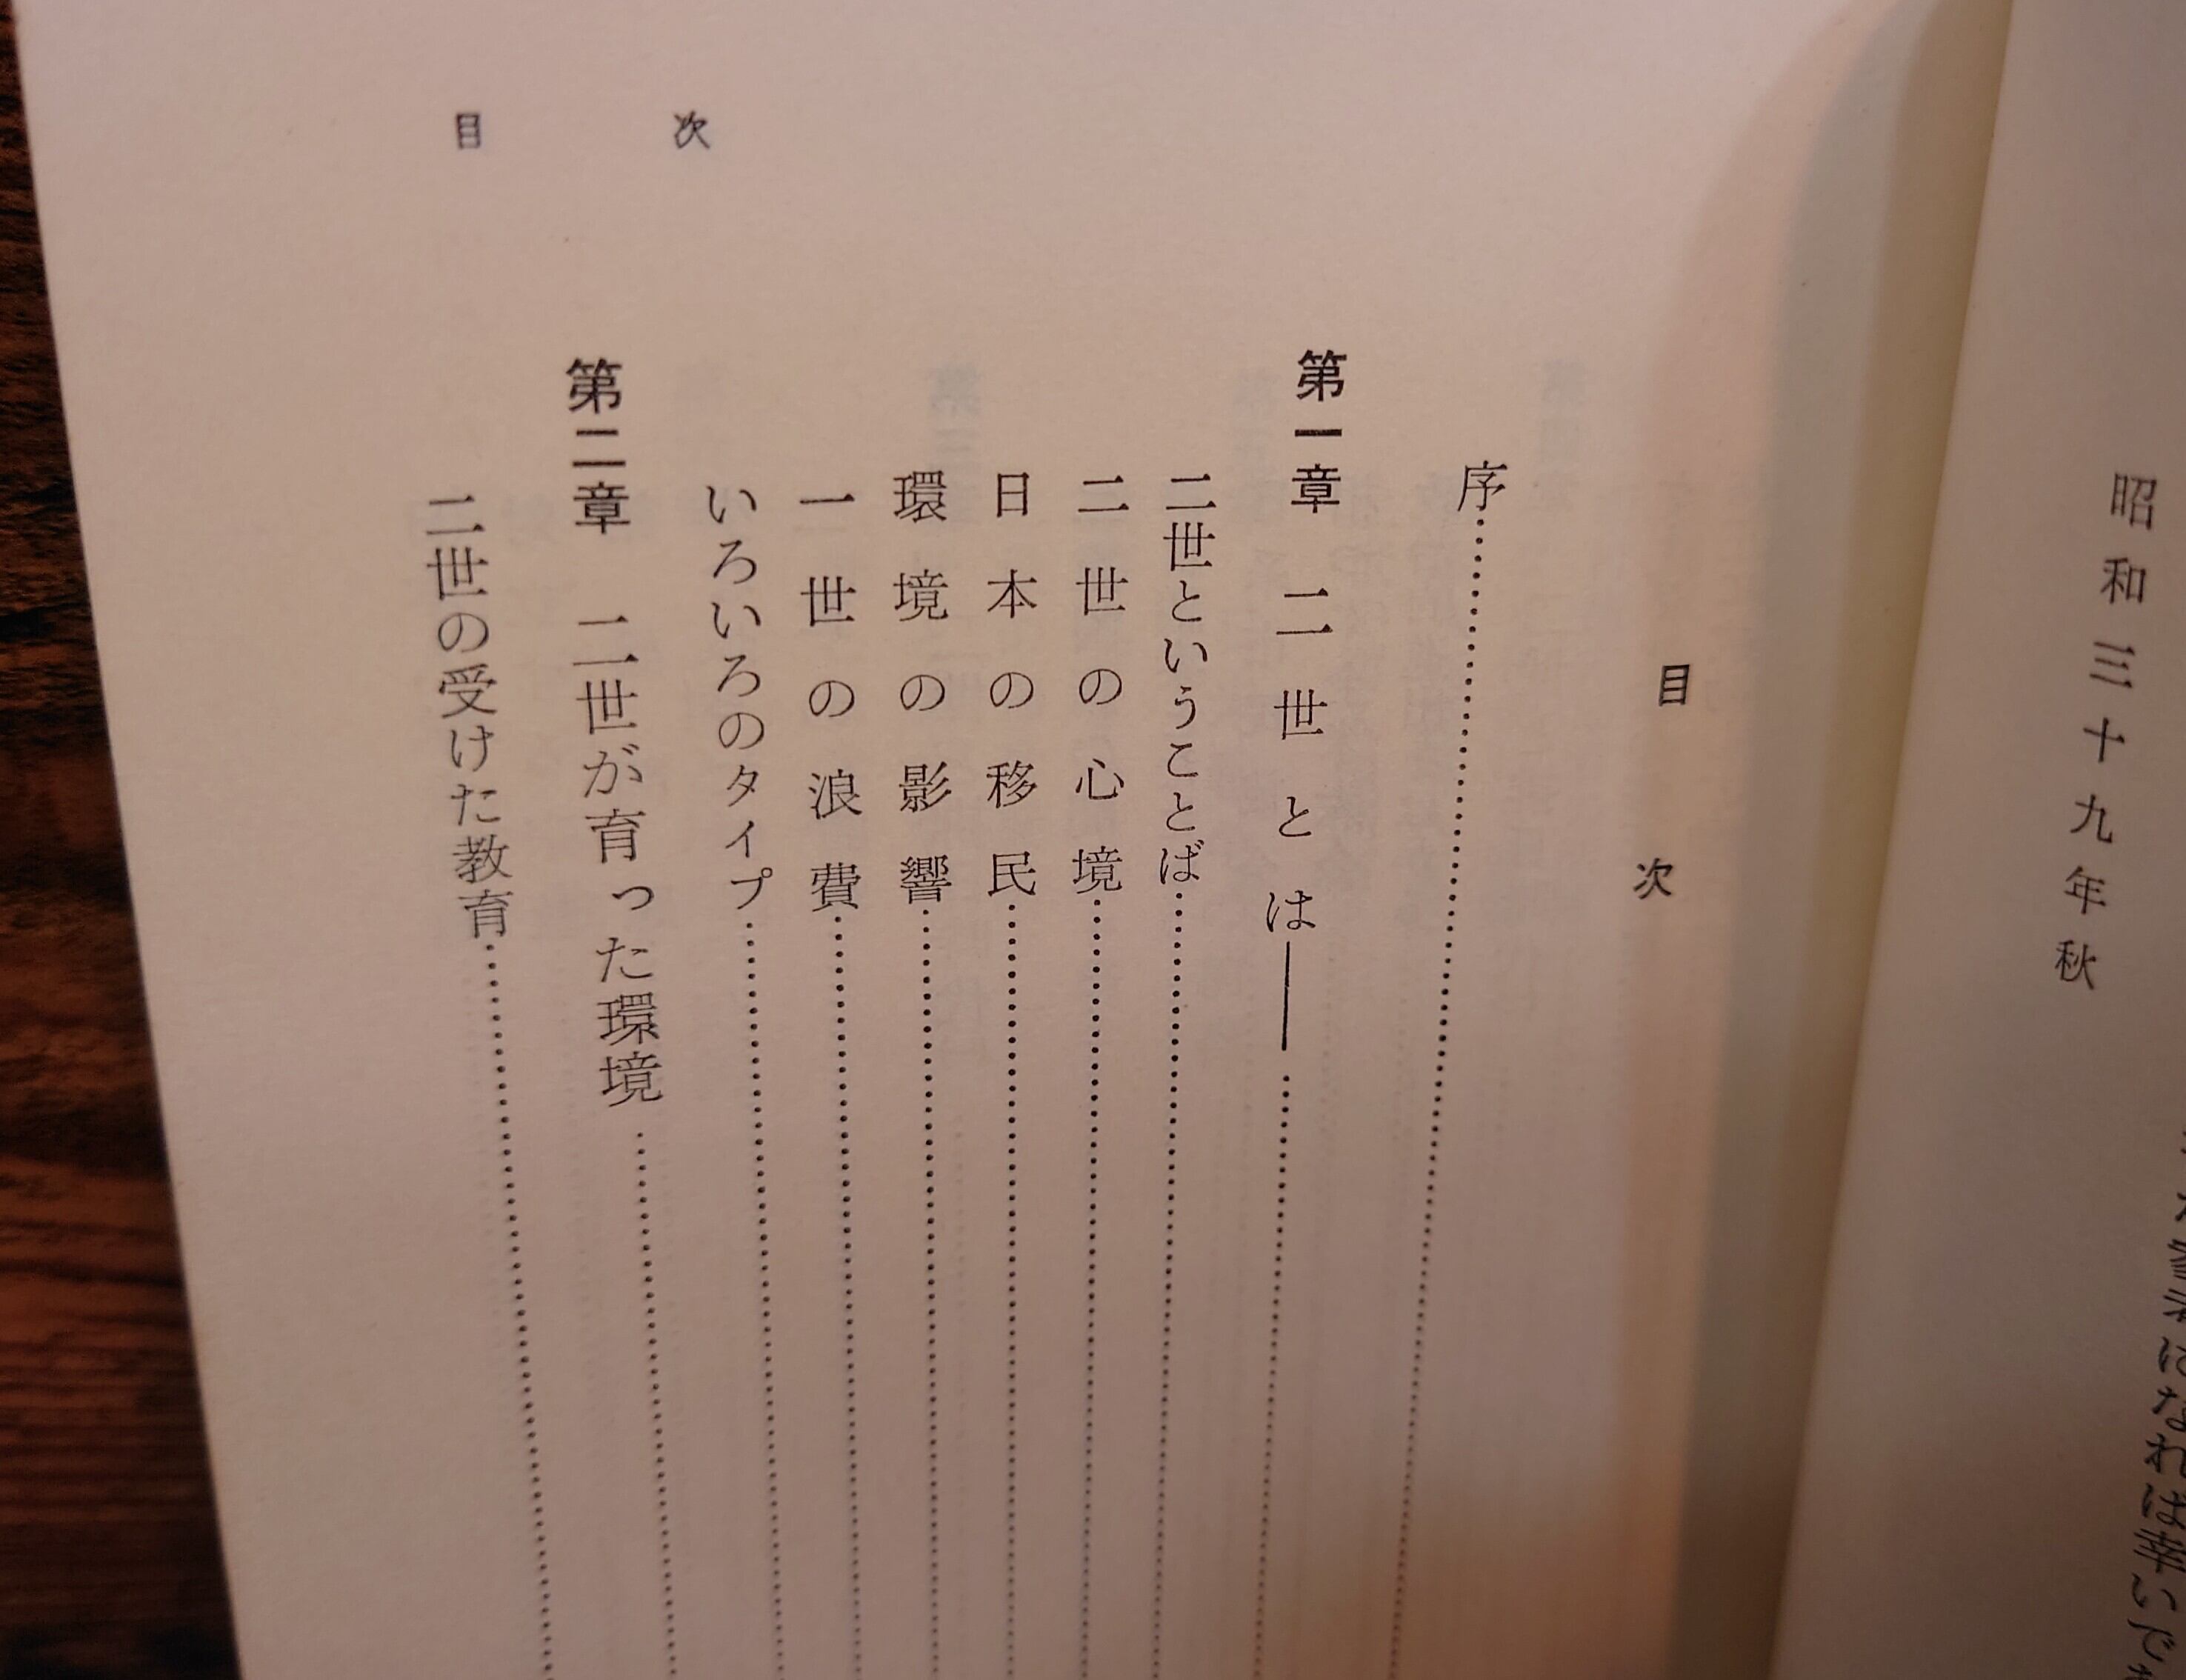 昭和三十九年秋
目次
序
第一章 二世とは――
二世ということば
二世の心境
日本の移民
環境の影響
一世の浪費
いろいろのタイプ
第二章 二世が育った環境
二世の受けた教育
目次